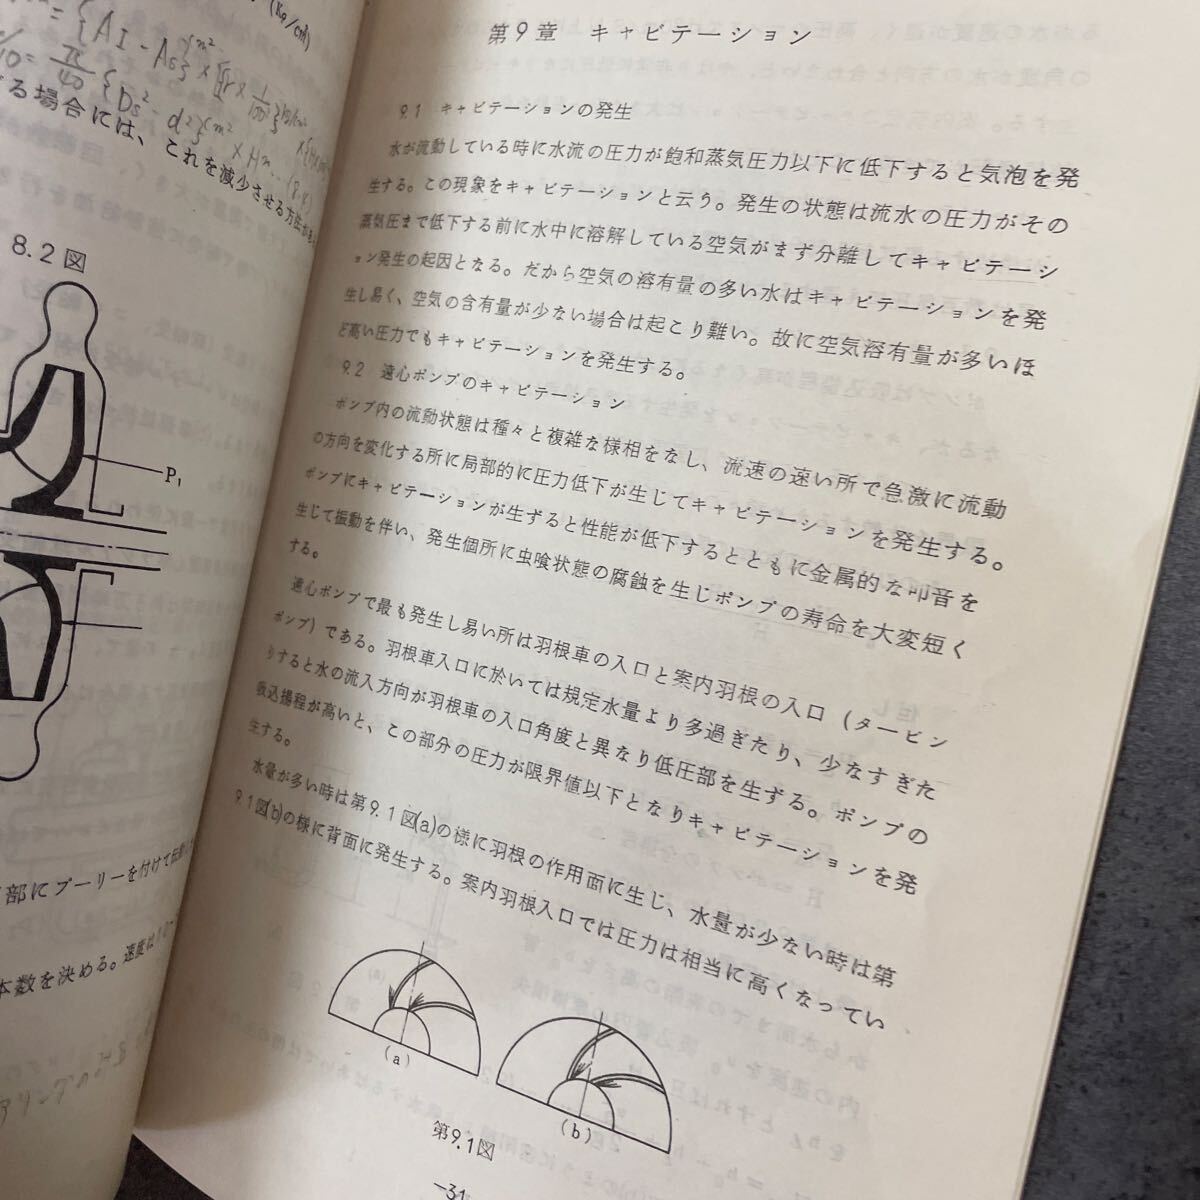 (Kg/cm²)
{AI - As}
D/40 = π/40 {Ds² - d²}
る場合には、これを減少させる方法が
8.2図
P₁
部にプーリーを付けて
本数を決める。速度は
第9章 キャビテーション
9.1 キャビテーションの発生
水が流動している時に水流の圧力が飽和蒸気圧力以下に低下すると気泡を発
生する。この現象をキャビテーションと云う。発生の状態は流水の圧力がその
蒸気圧まで低下する前に水中に溶解している空気がまず分離してキャビテーシ
ョン発生の起因となる。だから空気の溶有量の多い水はキャビテーションを発
生し易く、空気の含有量が少ない場合は起こり難い。故に空気溶有量が多いほ
ど高い圧力でもキャビテーションを発生する。
9.2 遠心ポンプのキャビテーション
ポンプ内の流動状態は種々と複雑な様相をなし、流速の速い所で急激に流動
の方向を変化する所に局部的に圧力低下が生じてキャビテーションを発生する。
ポンプにキャビテーションが生ずると性能が低下するとともに金属的な叩音を
生じて振動を伴い、発生個所に虫喰状態の腐蝕を生じポンプの寿命を大変短く
する。
遠心ポンプで最も発生し易い所は羽根車の入口と案内羽根の入口（タービン
ポンプ）である。羽根車入口に於いては規定水量より多過ぎたり、少なすぎた
りすると水の流入方向が羽根車の入口角度と異なり低圧部を生ずる。ポンプの
吸込揚程が高いと、この部分の圧力が限界値以下となりキャビテーションを発
生する。
水量が多い時は第9.1図(a)の様に羽根の作用面に生じ、水量が少ない時は第
9.1図(b)の様に背面に発生する。案内羽根入口では圧力は相当に高くなってい
(a)
(b)
第9.1図
-31